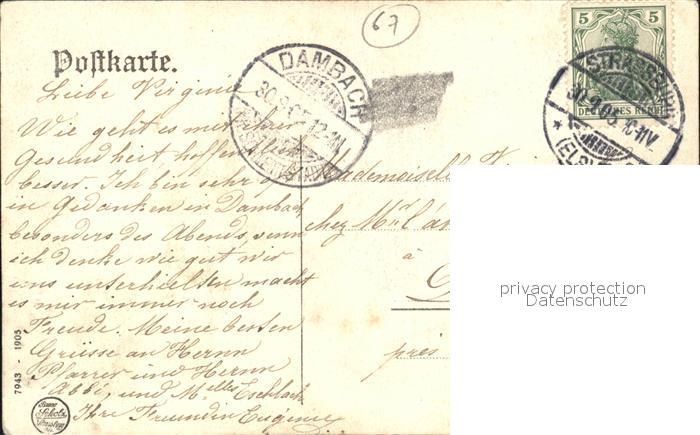 67
Postkarte.
DAMBACH
30.9.0 12-1N
(SCHLETTSTADT)
5 5
DEUTSCHES REICH
STRASSBURG
(ELS)
Liebe Virginie
Wie geht es mit ihrer
Gesundheit hoffen
besser. Ich bin sehr oft
in Gedanken in Dambach
besonders des Abends, wenn
ich denke wie gut wir
uns unterhielten macht
es mir immer noch
Freude. Meine besten
Grüsse an Herrn
Pfarrer und Herrn
Abbé, und Melles Eschbach
Ihre Freundin Eugenie
Mademoiselle
chez Mr l'
à
D
près
privacy protection
Datenschutz
7943 - 1905